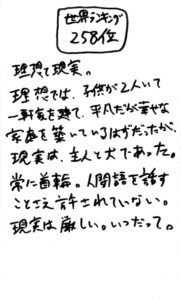 世界ランキング
258位
理想と現実。
理想では、子供が2人いて
一軒家を建て、平凡だが幸せな
家庭を築いているはずだったが、
現実は、主人と犬であった。
常に首輪。人間語を話す
ことさえ許されていない。
現実は厳しい。いつだって。